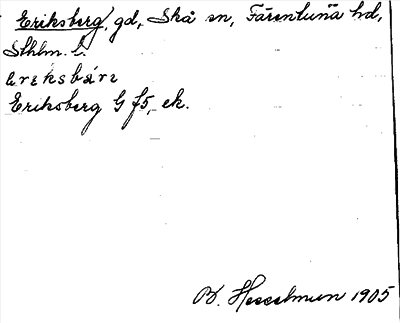 Eriksberg, gd, Skå sn, Färentuna hd,
Sthlm. l.
Eriksberg G f5, ek.
B. Hesselman 1905